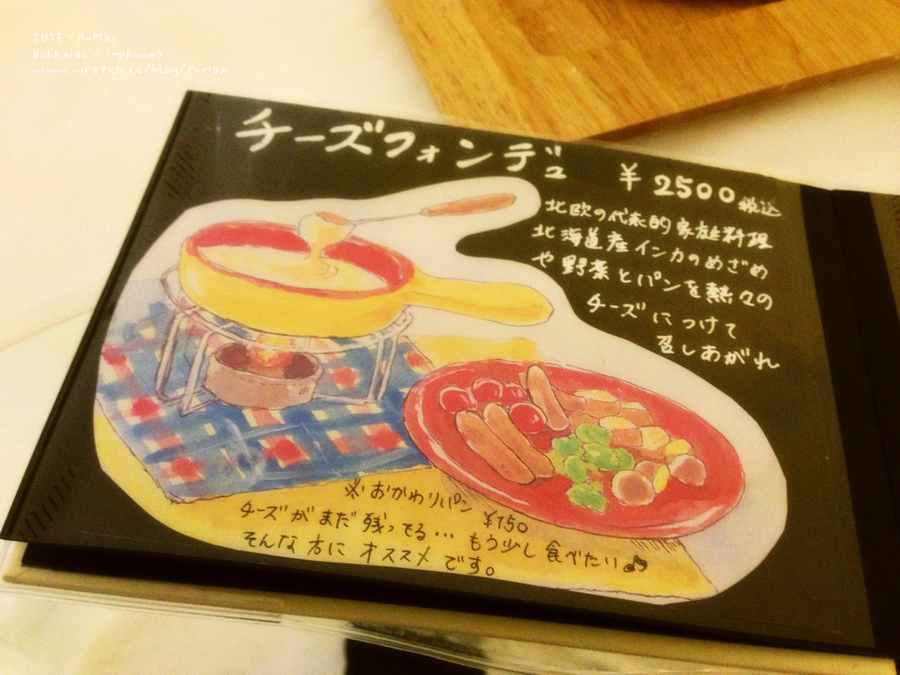 2013 · R-Max
Hokkaido · i-phone5
www.wretch.cc/blog/r-max
チーズフォンデュ
¥2500税込
北欧の代表的家庭料理
北海道産インカのめざめ
や野菜とパンを熱々の
チーズにつけて
召しあがれ
※おかわりパン ¥150
チーズがまだ残ってる… もう少し食べたい♪
そんな方にオススメです。